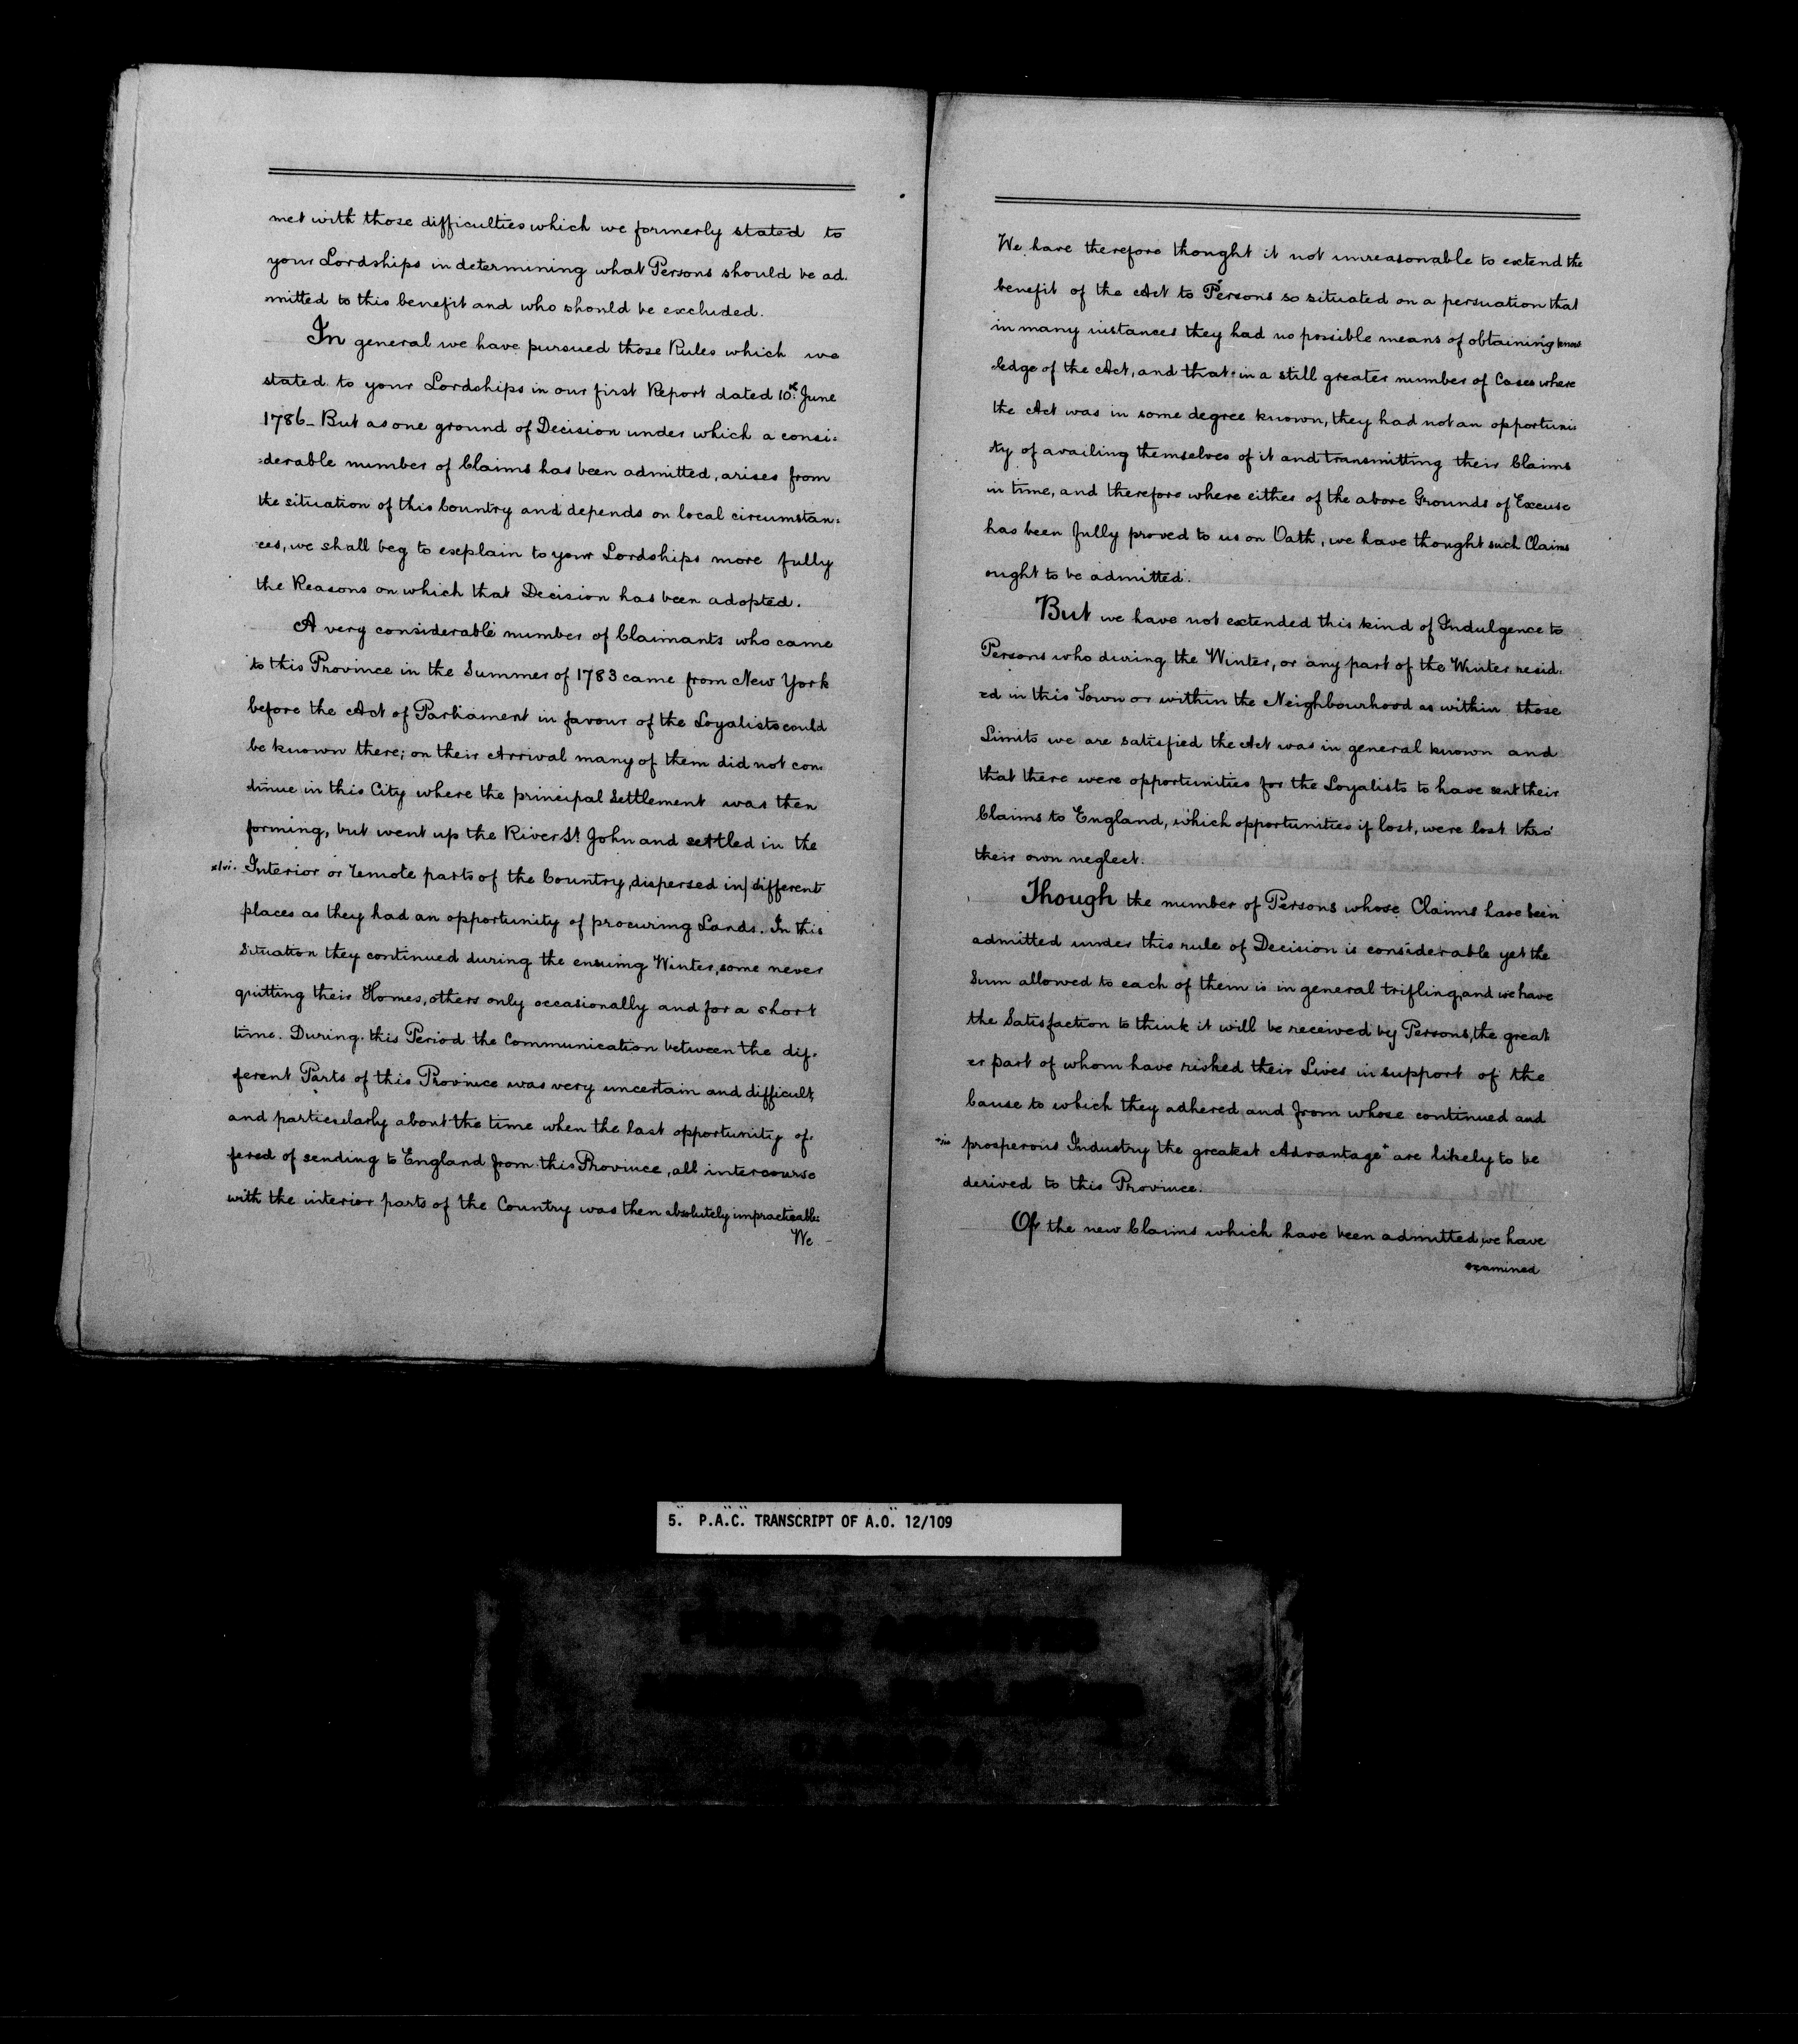 met with those difficulties which we formerly stated to
your Lordships in determining what Persons should be ad-
mitted to this benefit and who should be excluded.
In general we have pursued those Rules which we
stated to your Lordships in our first Report dated 10th June
1786_ But as one ground of Decision under which a consi=
=derable number of Claims has been admitted, arises from
the situation of this Country and depends on local circumstan=
ces, we shall beg to explain to your Lordships more fully
the Reasons on which that Decision has been adopted.
A very considerable number of Claimants who came
to this Province in the Summer of 1783 came from New York
before the Act of Parliament in favour of the Loyalists could
be known there; on their Arrival many of them did not con-
tinue in this City where the principal Settlement was then
forming, but went up the River St John and settled in the
xlvi. Interior or remote parts of the Country, dispersed in/different
places as they had an opportunity of procuring Lands. In this
situation they continued during the ensuing Winter, some never
quitting their Homes, others only occasionally and for a short
time. During this Period the Communication between the dif-
ferent Parts of this Province was very uncertain and difficult,
and particularly about the time when the last opportunity of-
fered of sending to England from this Province, all intercourse
with the interior parts of the Country was then absolutely impracticable:
We
We have therefore thought it not unreasonable to extend the
benefit of the Act to Persons so situated on a persuation that
in many instances they had no possible means of obtaining know
ledge of the Act, and that in a still greater number of Cases where
the Act was in some degree known, they had not an opportuni-
ty of availing themselves of it and transmitting their Claims
in time, and therefore where either of the above Grounds of Excuse
has been fully proved to us on Oath, we have thought such Claims
ought to be admitted.
But we have not extended this kind of Indulgence to
Persons who during the Winter, or any part of the Winter resid-
ed in this Town or within the Neighbourhood as within those
Limits we are satisfied the Act was in general known and
that there were opportunities for the Loyalists to have sent their
Claims to England, which opportunities if lost, were lost thro'
their own neglect.
Though the number of Persons whose Claims have been
admitted under this rule of Decision is considerable yet the
Sum allowed to each of them is in general trifling, and we have
the Satisfaction to think it will be received by Persons, the great
er part of whom have risked their Lives in support of the
Cause to which they adhered and from whose continued and
prosperous Industry the greatest Advantage* are likely to be
derived to this Province.
Of the new Claims which have been admitted, we have
examined
5. P.A.C. TRANSCRIPT OF A.O. 12/109